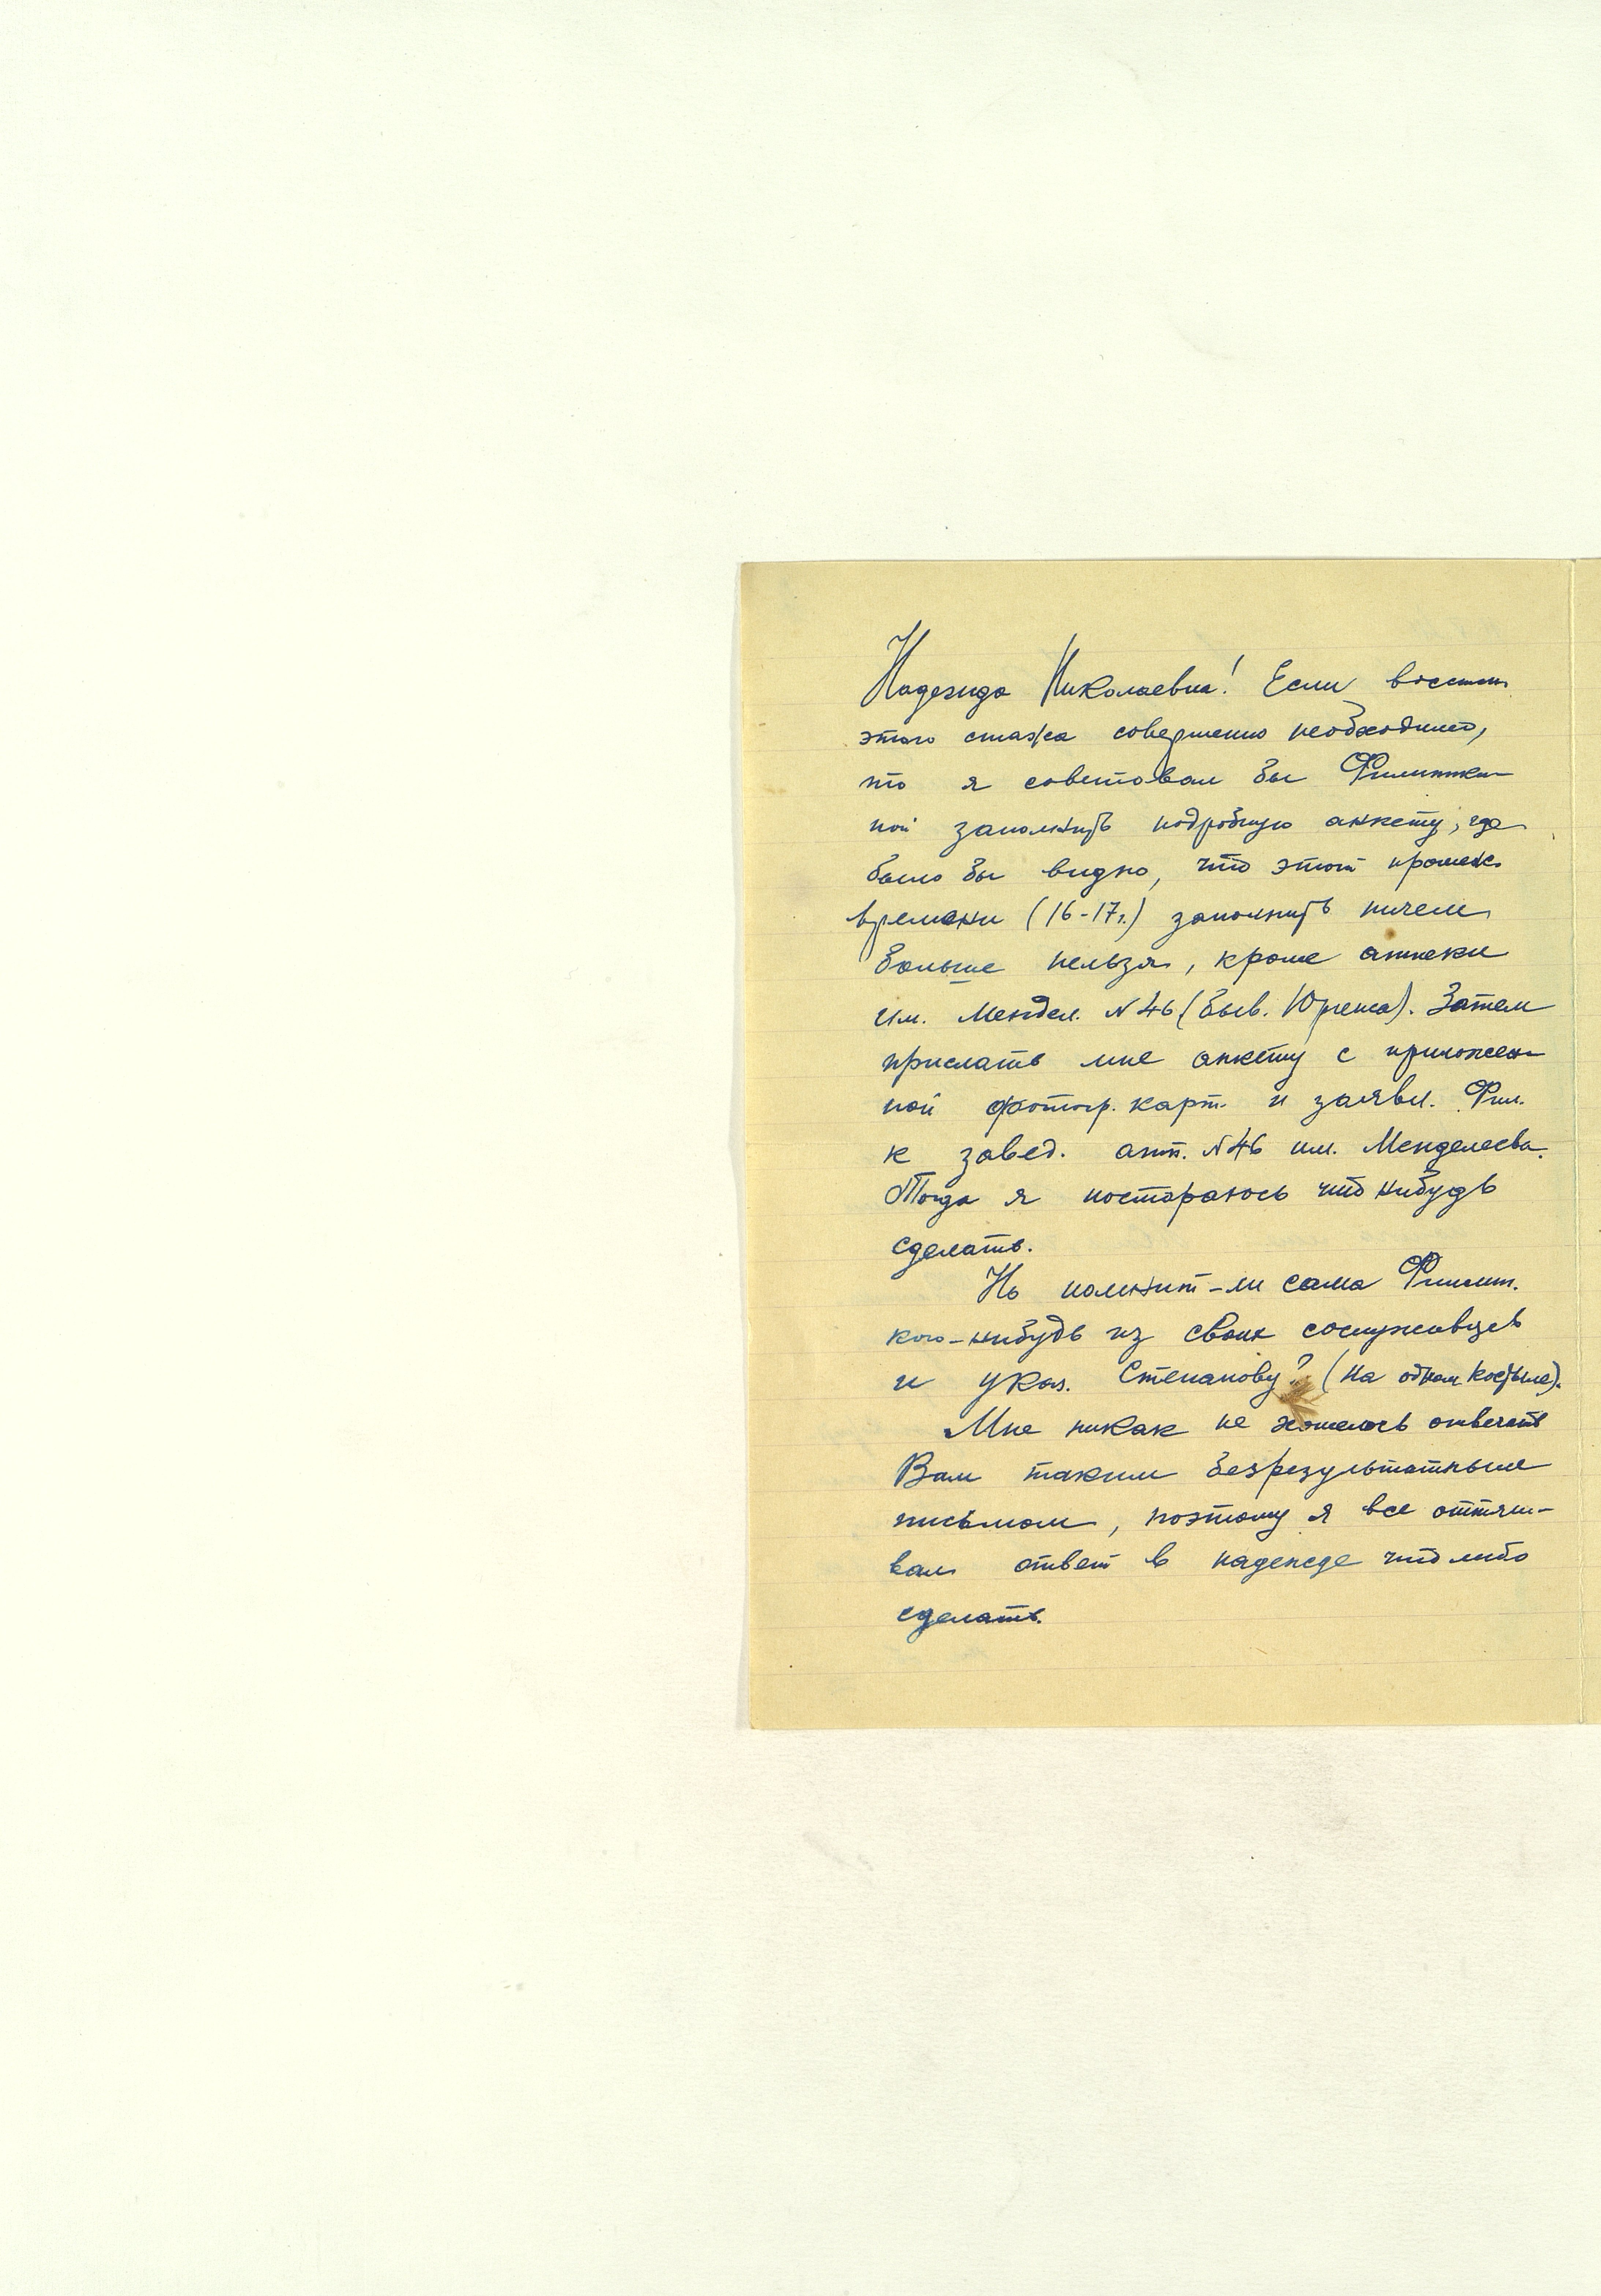 Надежда Николаевна! Если восстан.
этого стажа совершенно необходимо,
то я советовал бы Филипки-
ной заполнить подробную анкету, где
было бы видно, что этот промеж.
времени (16-17г.) заполнить ничем
больше нельзя, кроме аптеки
им. Мендел. N46 (быв. Юргенса). Затем
прислать мне анкету с приложен-
ной фотогр. карт. и заявл. Фил.
к завед. апт. N46 им. Менделеева.
Тогда я постараюсь что нибудь
сделать.
Не помнит-ли сама Филип.
кого-нибудь из своих сослуживцев
и указ. Степанову? (на одном костыле).
Мне никак не хотелось отвечать
Вам таким безрезультатным
письмом, поэтому я все оттяги-
вал ответ в надежде что либо
сделать.